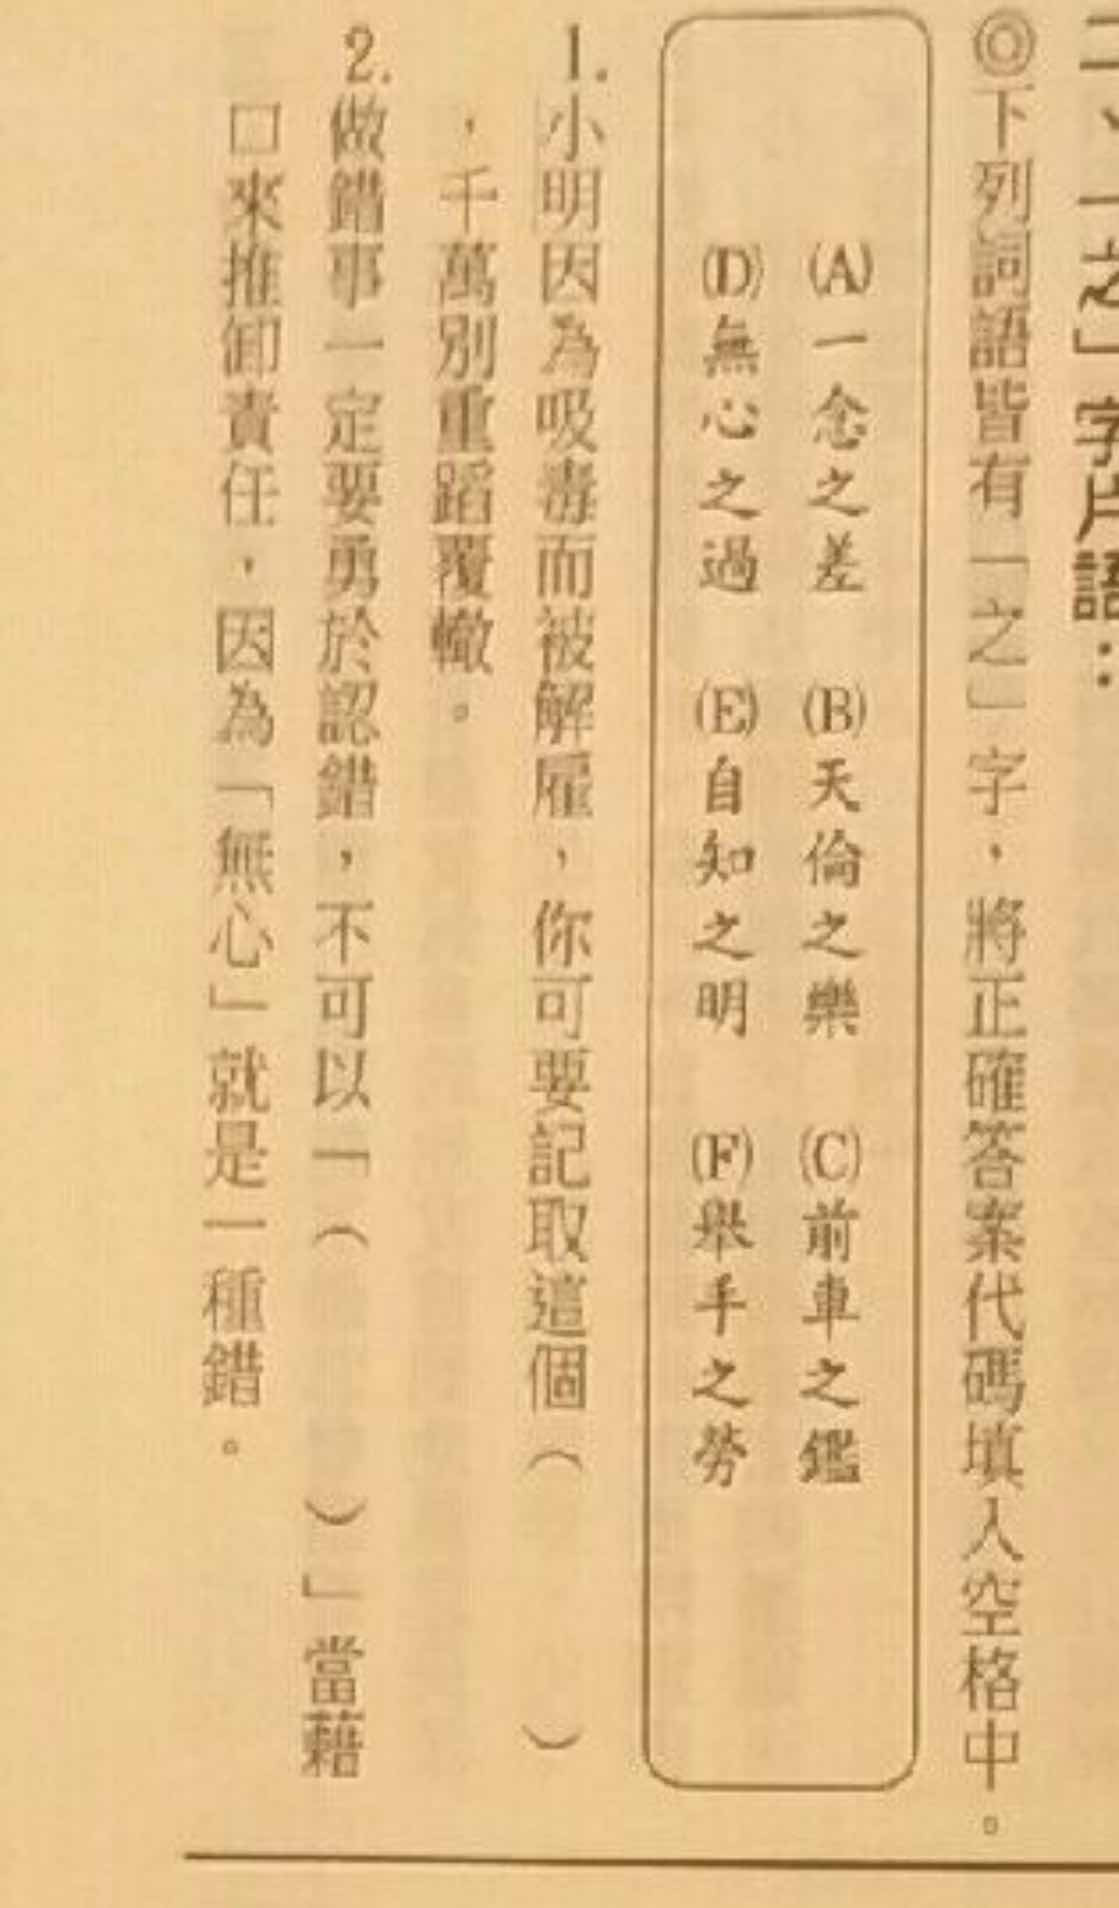 二、「之」字片語：
◎下列詞語皆有「之」字，將正確答案代碼填入空格中。
(A)一念之差　(B)天倫之樂　(C)前車之鑑
(D)無心之過　(E)自知之明　(F)舉手之勞
1.小明因為吸毒而被解雇，你可要記取這個（　　　）
，千萬別重蹈覆轍。
2.做錯事一定要勇於認錯，不可以「（　　　）」當藉
口來推卸責任，因為「無心」就是一種錯。